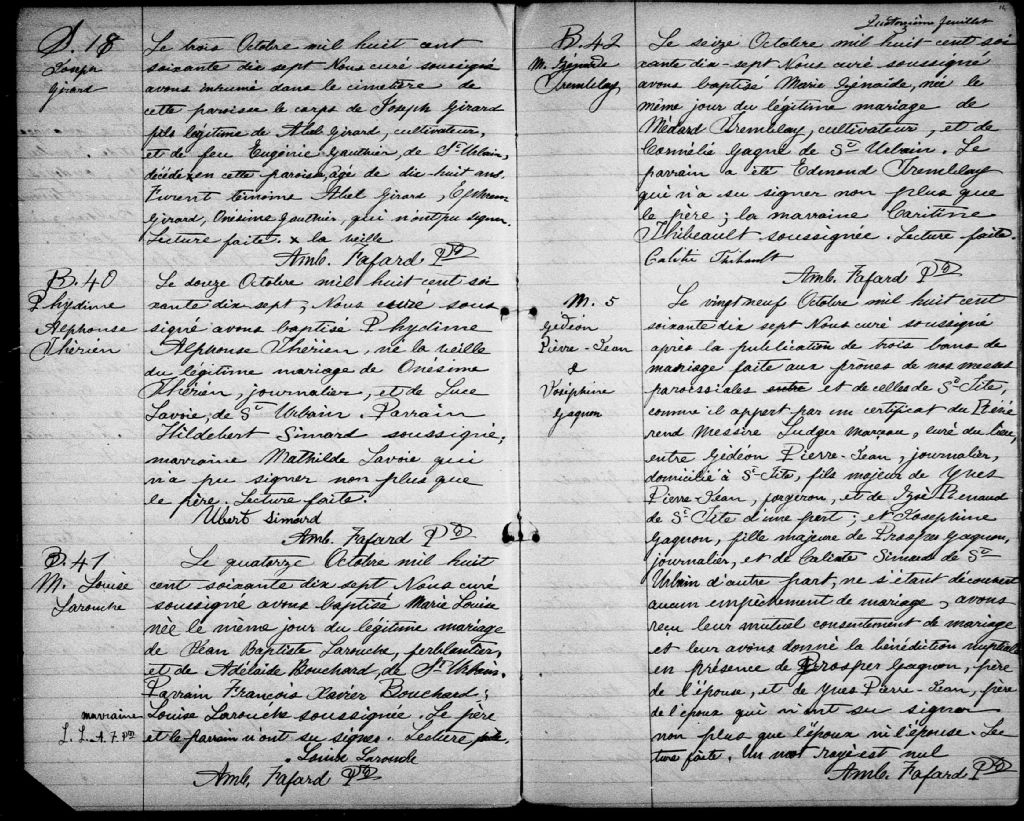 S. 18
Joseph
Girard
Le trois Octobre mil huit cent
soixante dix sept Nous curé soussigné
avons inhumé dans le cimetière de
cette paroisse le corps de Joseph Girard
fils légitime de Abel Girard, cultivateur,
et de feu Eugénie Gauthier, de St Urbain,
décédé x en cette paroisse, âgé de dix-huit ans.
Furent témoins Abel Girard,
Girard, Onésime Gauthier, qui n'ont pu signer.
Lecture faite. x la veille
Amb. Fafard Ptre
B. 40
Phydime
Alphonse
Thérien
Le douze Octobre mil huit cent soi
xante dix sept, Nous curé sous
signé avons baptisé Phydime
Alphonse Thérien, né la veille
du légitime mariage de Onésime
Thérien, journalier, et de Luce
Lavoie, de St Urbain. Parrain
Hildebert Simard soussigné,
marraine Mathilde Lavoie qui
n'a pu signer non plus que
le père. Lecture faite.
Ubert Simard
Amb. Fafard Ptre
B. 41
M. Louise
Larouche
Le quatorze Octobre mil huit
cent soixante dix sept Nous curé
soussigné avons baptisé Marie Louise
née le même jour du légitime mariage
de Jean Baptiste Larouche, ferblantier,
et de Adélaide Bouchard, de St Urbain.
Parrain François Xavier Bouchard;
marraine
Louise Larouche soussignée. Le père
L. L. A. F. Ptre
et le parrain n'ont su signer. Lecture faite.
Louise Larouche
Amb. Fafard Ptre
Quatorzième feuillet
B. 42
M. Zénaïde
Tremblay
Le seize Octobre mil huit-cent soi
xante dix-sept Nous curé soussigné
avons baptisé Marie Zénaïde, née le
même jour du légitime mariage de
Médard Tremblay, cultivateur, et de
Cornélie Gagné de St Urbain. Le
parrain a été Edmond Tremblay
qui n'a su signer non plus que
le père; la marraine Caritine
Thibeault soussignée. Lecture faite.
Thibault
Amb. Fafard Ptre
M. 5
Gédéon
Pierre-Jean
&
Joséphine
Gagnon
Le vingt neuf Octobre mil huit cent
soixante dix sept Nous curé soussigné
après la publication de trois bans de
mariage faite aux prônes de nos messes
paroissiales entre et de celles de St Tite,
comme il appert par un certificat du Révé
rend Messire Ludger Marceau, curé du lieu,
entre Gédéon Pierre-Jean, journalier,
domicilié à St-Tite, fils majeur de Yves
Pierre-Jean, forgeron, et de Zoé Renaud
de St Tite d'une part; et Josephine
Gagnon, fille majeure de Prosper Gagnon,
journalier, et de Calixte Simard de St
Urbain d'autre part, ne s'étant découvert
aucun empêchement de mariage, avons
reçu leur mutuel consentement de mariage
et leur avons donné la bénédiction nuptiale
en présence de Prosper Gagnon, père
de l'épouse, et de Yves Pierre-Jean, père
de l'époux qui n'ont su signer
non plus que l'époux ni l'épouse. Lec
ture faite. Un mot rayé est nul
Amb. Fafard Ptre